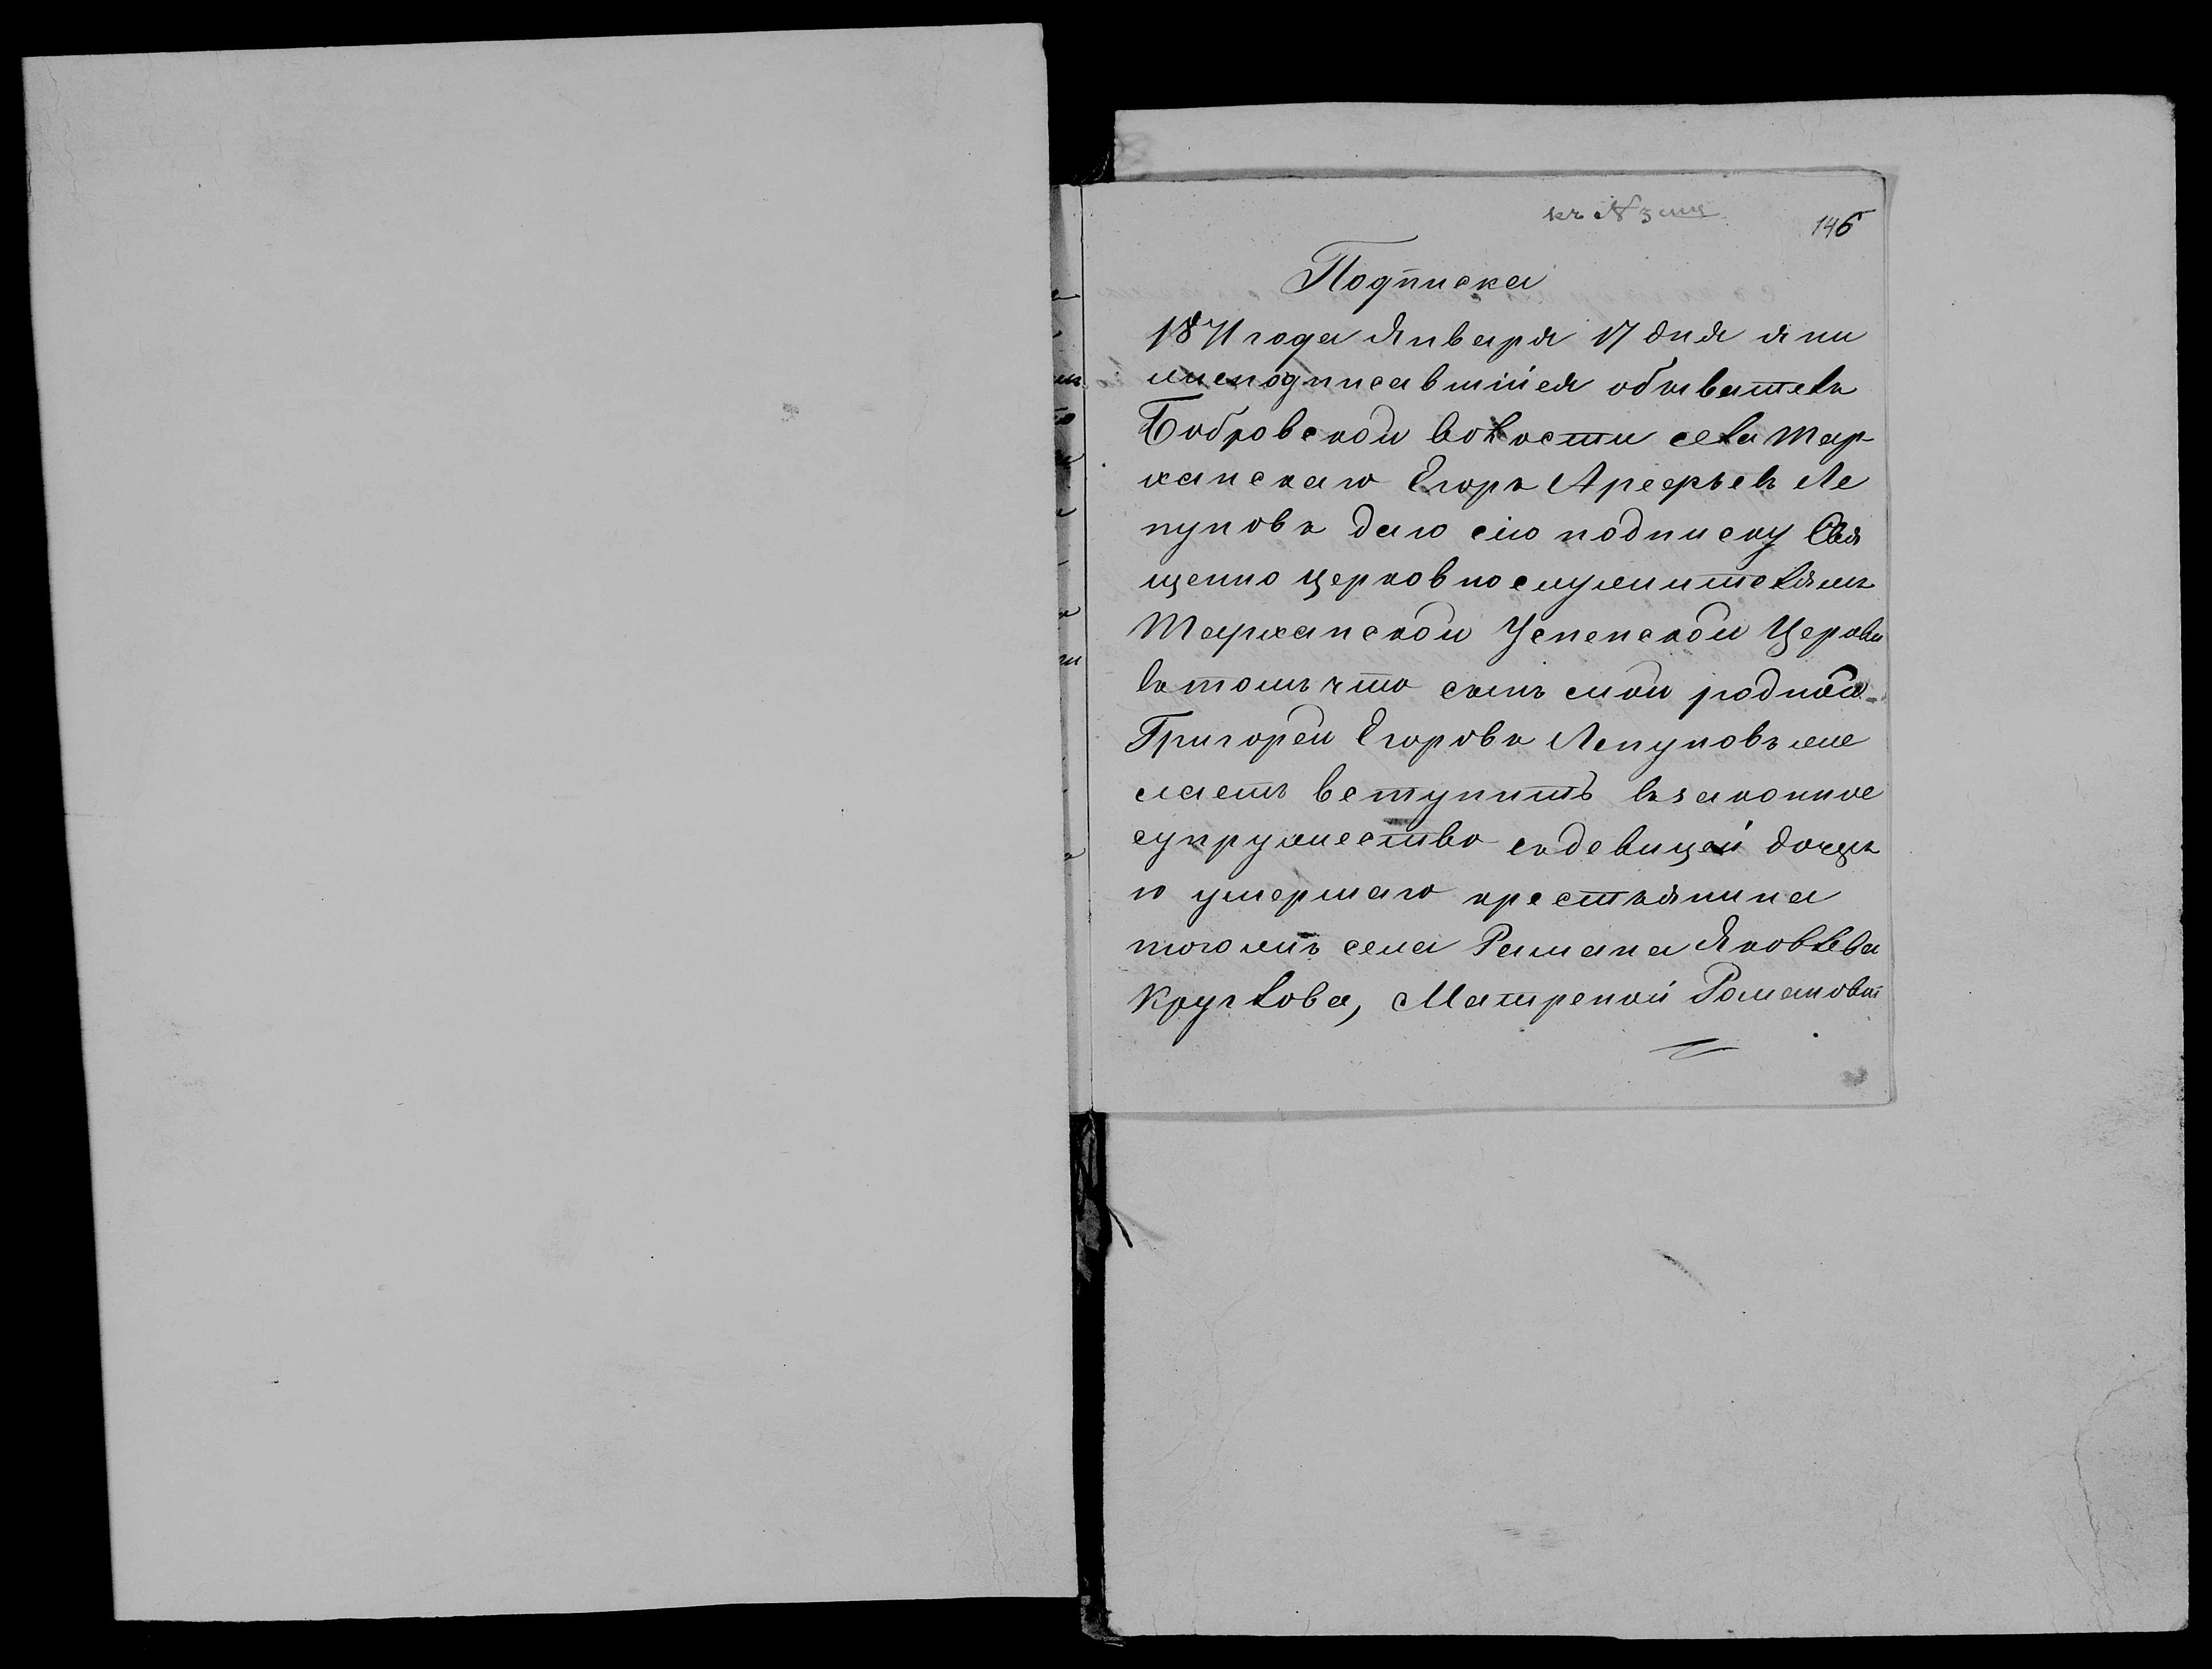 къ № 3 му
146
Подписка
1871 года Января 17 дня я ни
жеподписавшійся обыватель
Бобровской волости села Тар
ханскаго Егоръ Арефьевъ Ле
пуновъ даю сію подписку Свя
щенно церковно служителямъ
Тарханской Успенской Церкви
въ томъ что сынъ мой родной
Григорей Егоровъ Лепуновъ же
лаетъ вступить въ законное
супружество съ девицей дочерь
ю умершаго крестьянина
тогожъ села Рамана Яковлева
Круглова, Матреной Романовой